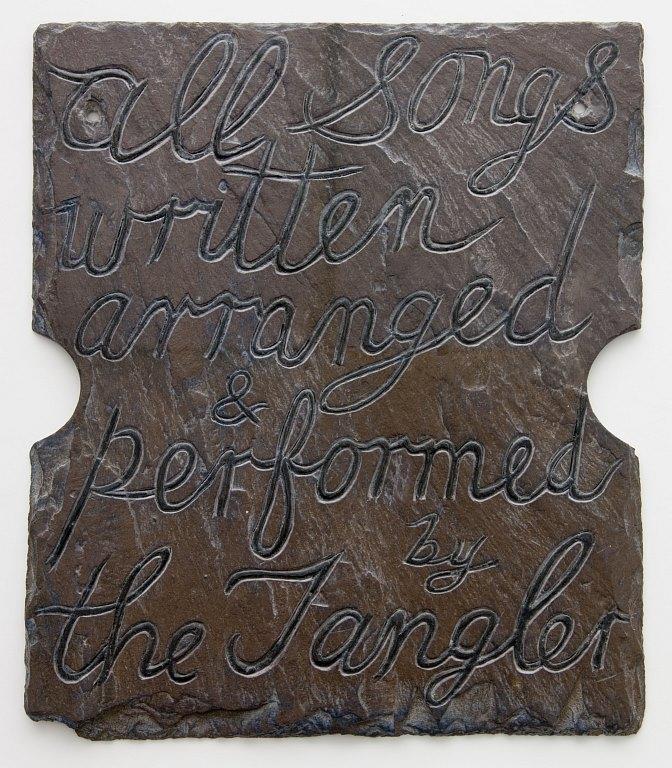 all songs
written
arranged
&
performed
by
the Tangler